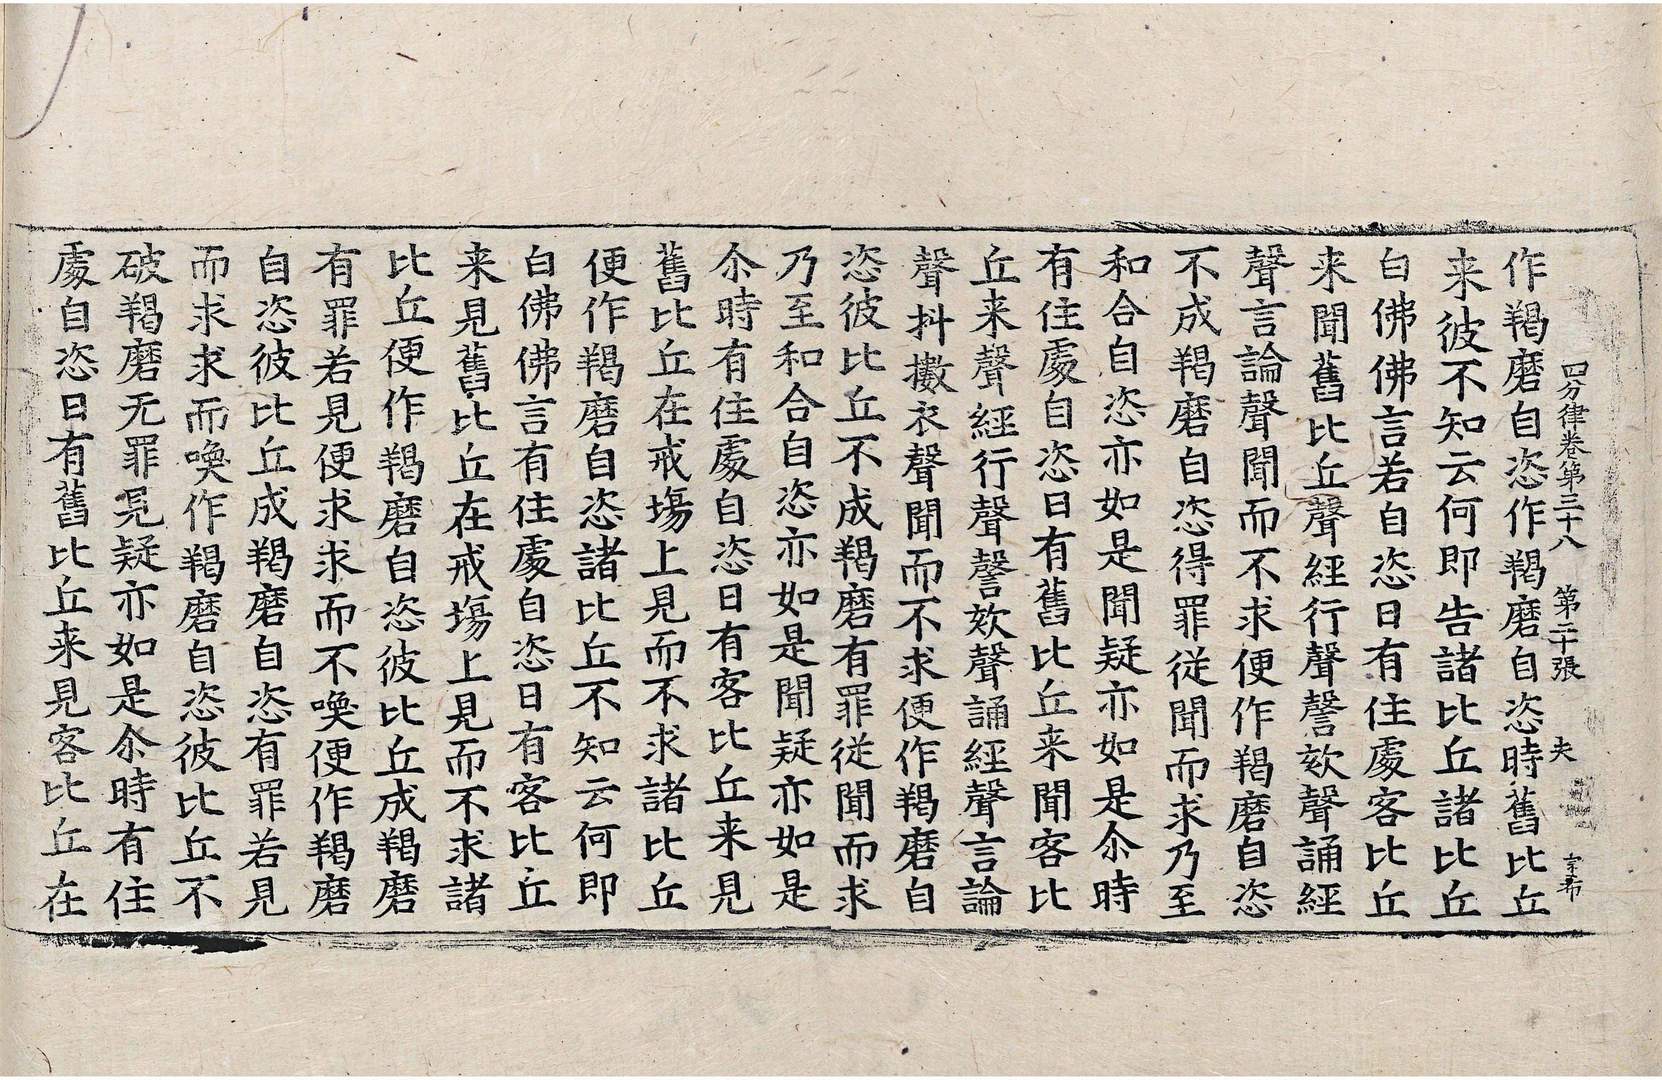 四分律卷第三十八 第二十張 夫 宗希
作羯磨自恣作羯磨自恣時舊比丘
来彼不知云何即告諸比丘諸比丘
白佛佛言若自恣日有住處客比丘
来聞舊比丘聲經行聲謦欬聲誦經
聲言論聲聞而不求便作羯磨自恣
不成羯磨自恣得罪從聞而求乃至
和合自恣亦如是聞疑亦如是尒時
有住處自恣日有舊比丘来聞客比
丘来聲經行聲謦欬聲誦經聲言論
聲抖擻衣聲聞而不求便作羯磨自
恣彼比丘不成羯磨有罪從聞而求
乃至和合自恣亦如是聞疑亦如是
尒時有住處自恣日有客比丘来見
舊比丘在戒場上見而不求諸比丘
便作羯磨自恣諸比丘不知云何即
白佛佛言有住處自恣日有客比丘
来見舊比丘在戒場上見而不求諸
比丘便作羯磨自恣彼比丘成羯磨
有罪若見便求求而不喚便作羯磨
自恣彼比丘成羯磨自恣有罪若見
而求求而喚作羯磨自恣彼比丘不
破羯磨无罪見疑亦如是尒時有住
處自恣日有舊比丘来見客比丘在